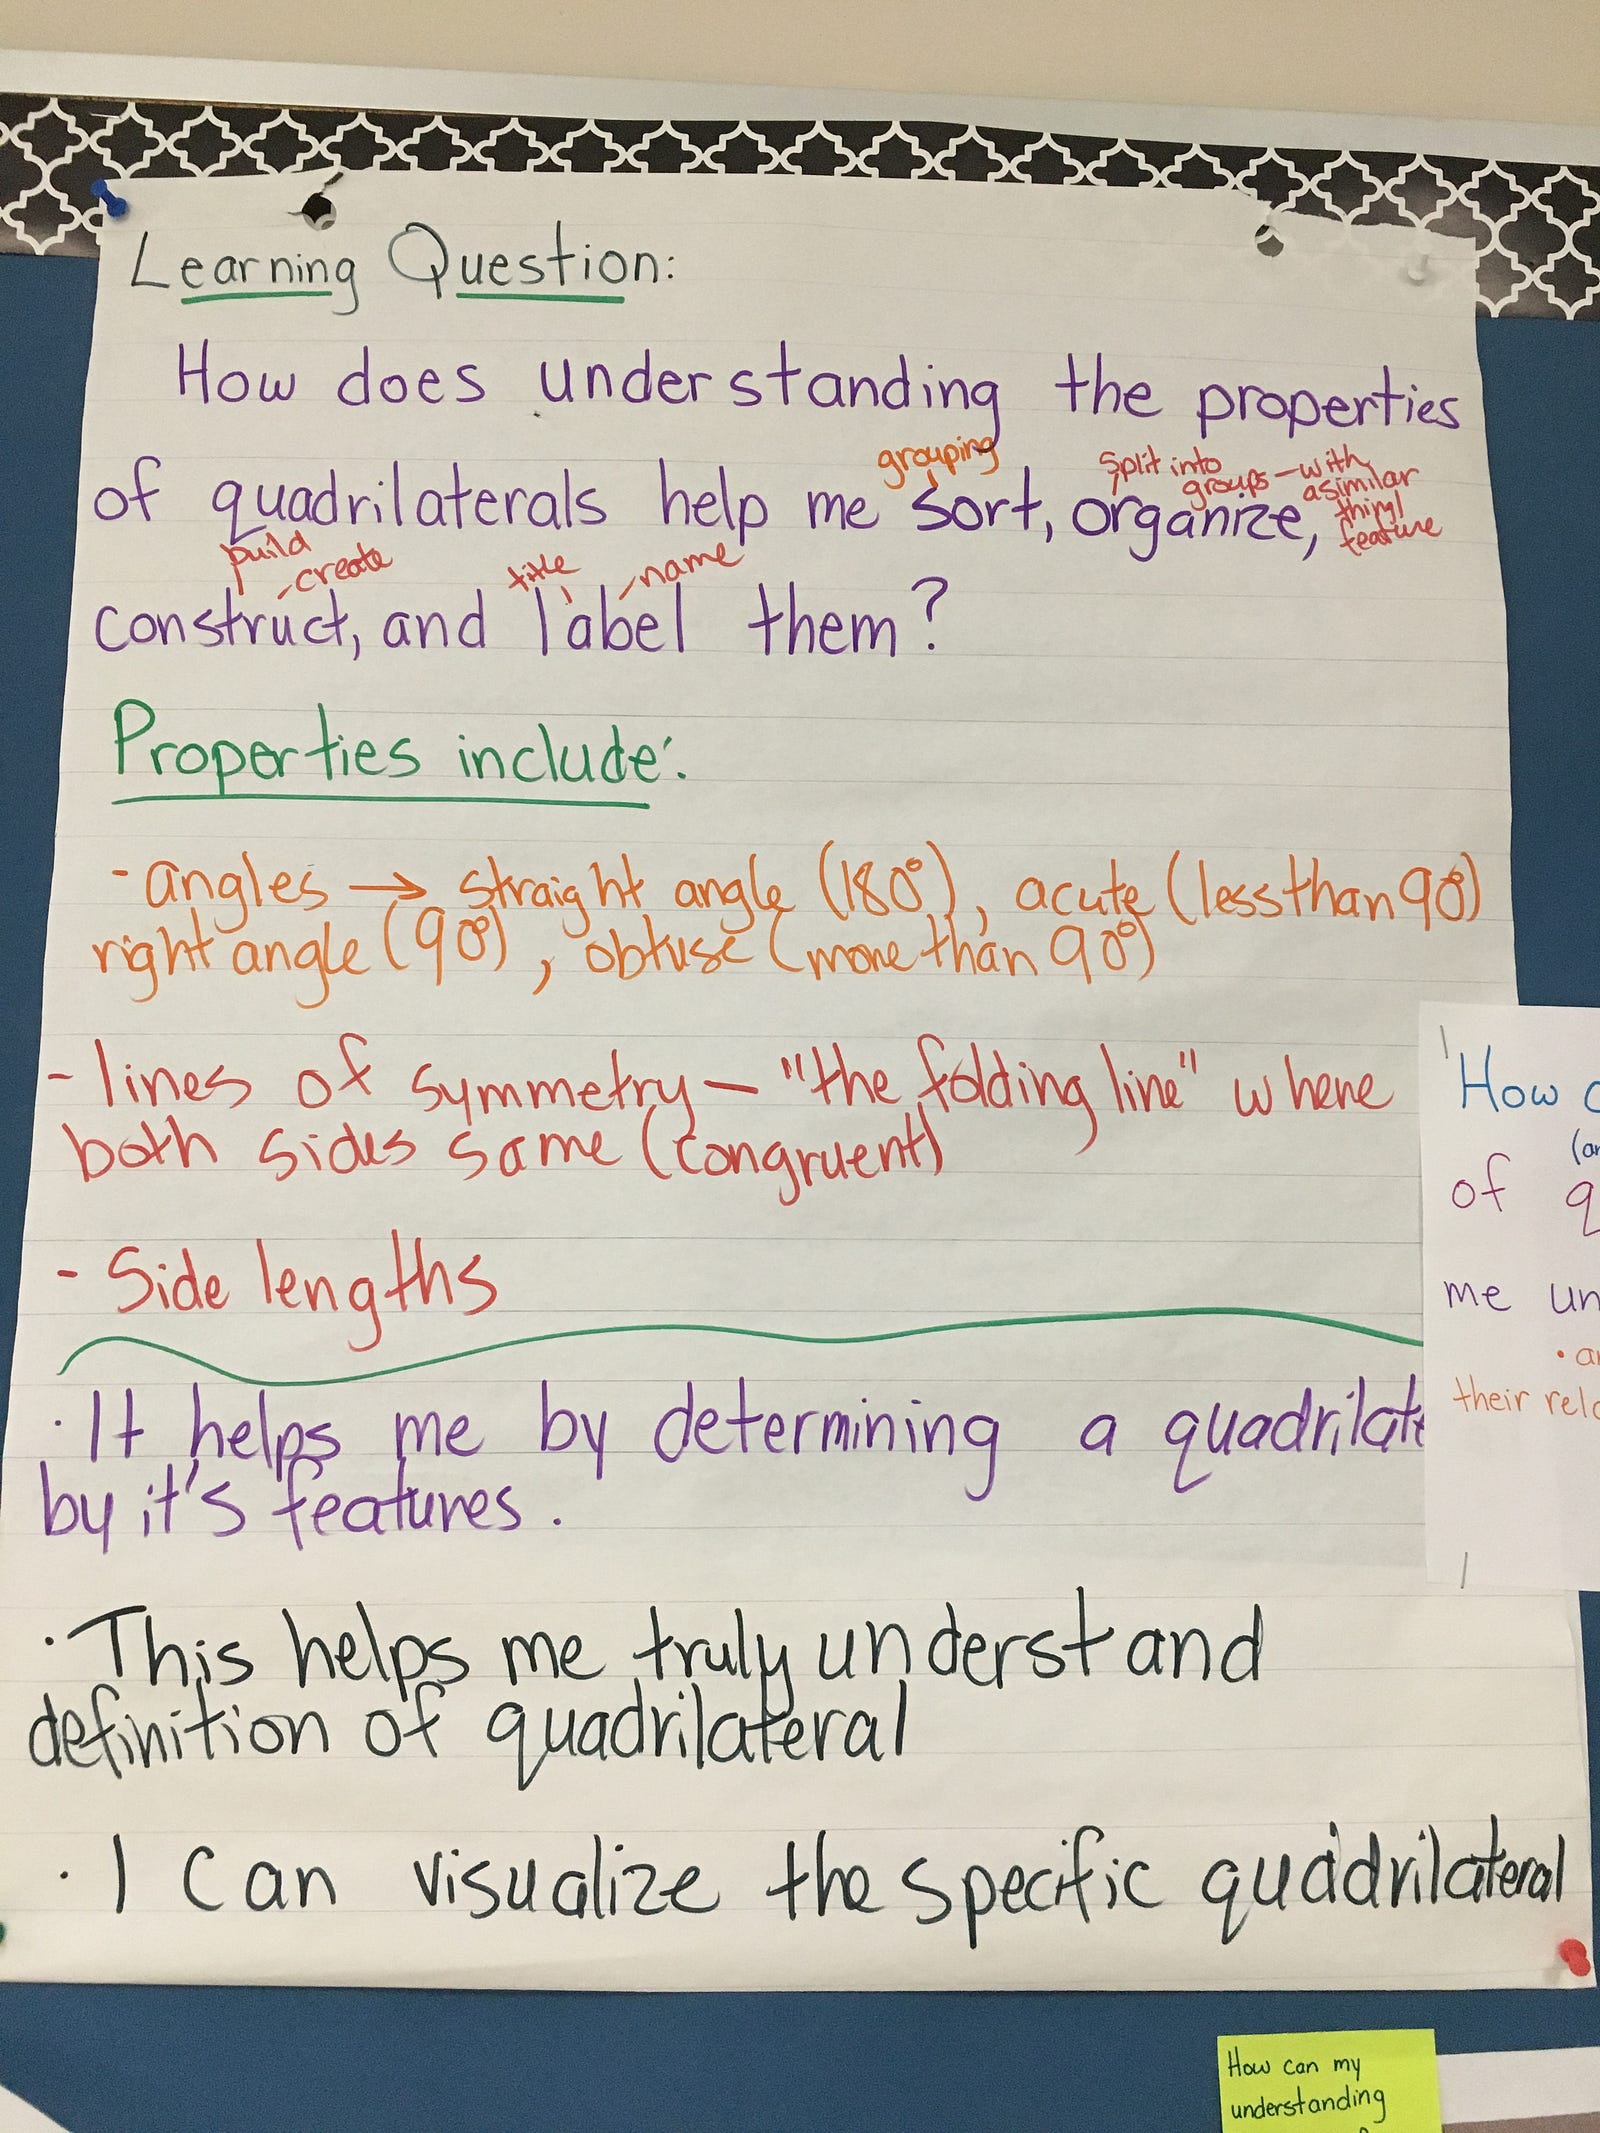 Learning Question:
How does understanding the properties
grouping
split into
groups - with
a similar
thing/
feature
of quadrilaterals help me sort, organize,
build
- create
title
name
construct, and label them?
Properties include:
- angles → straight angle (180°), acute (less than 90°)
right angle (90°), obtuse (more than 90°)
- lines of symmetry - "the folding line" where
both sides same (congruent)
- Side lengths
· It helps me by determining a quadrilate
by it's features.
· This helps me truly understand
definition of quadrilateral
· I can visualize the specific quadrilateral
How
of q
me un
their rel
How can my
understanding